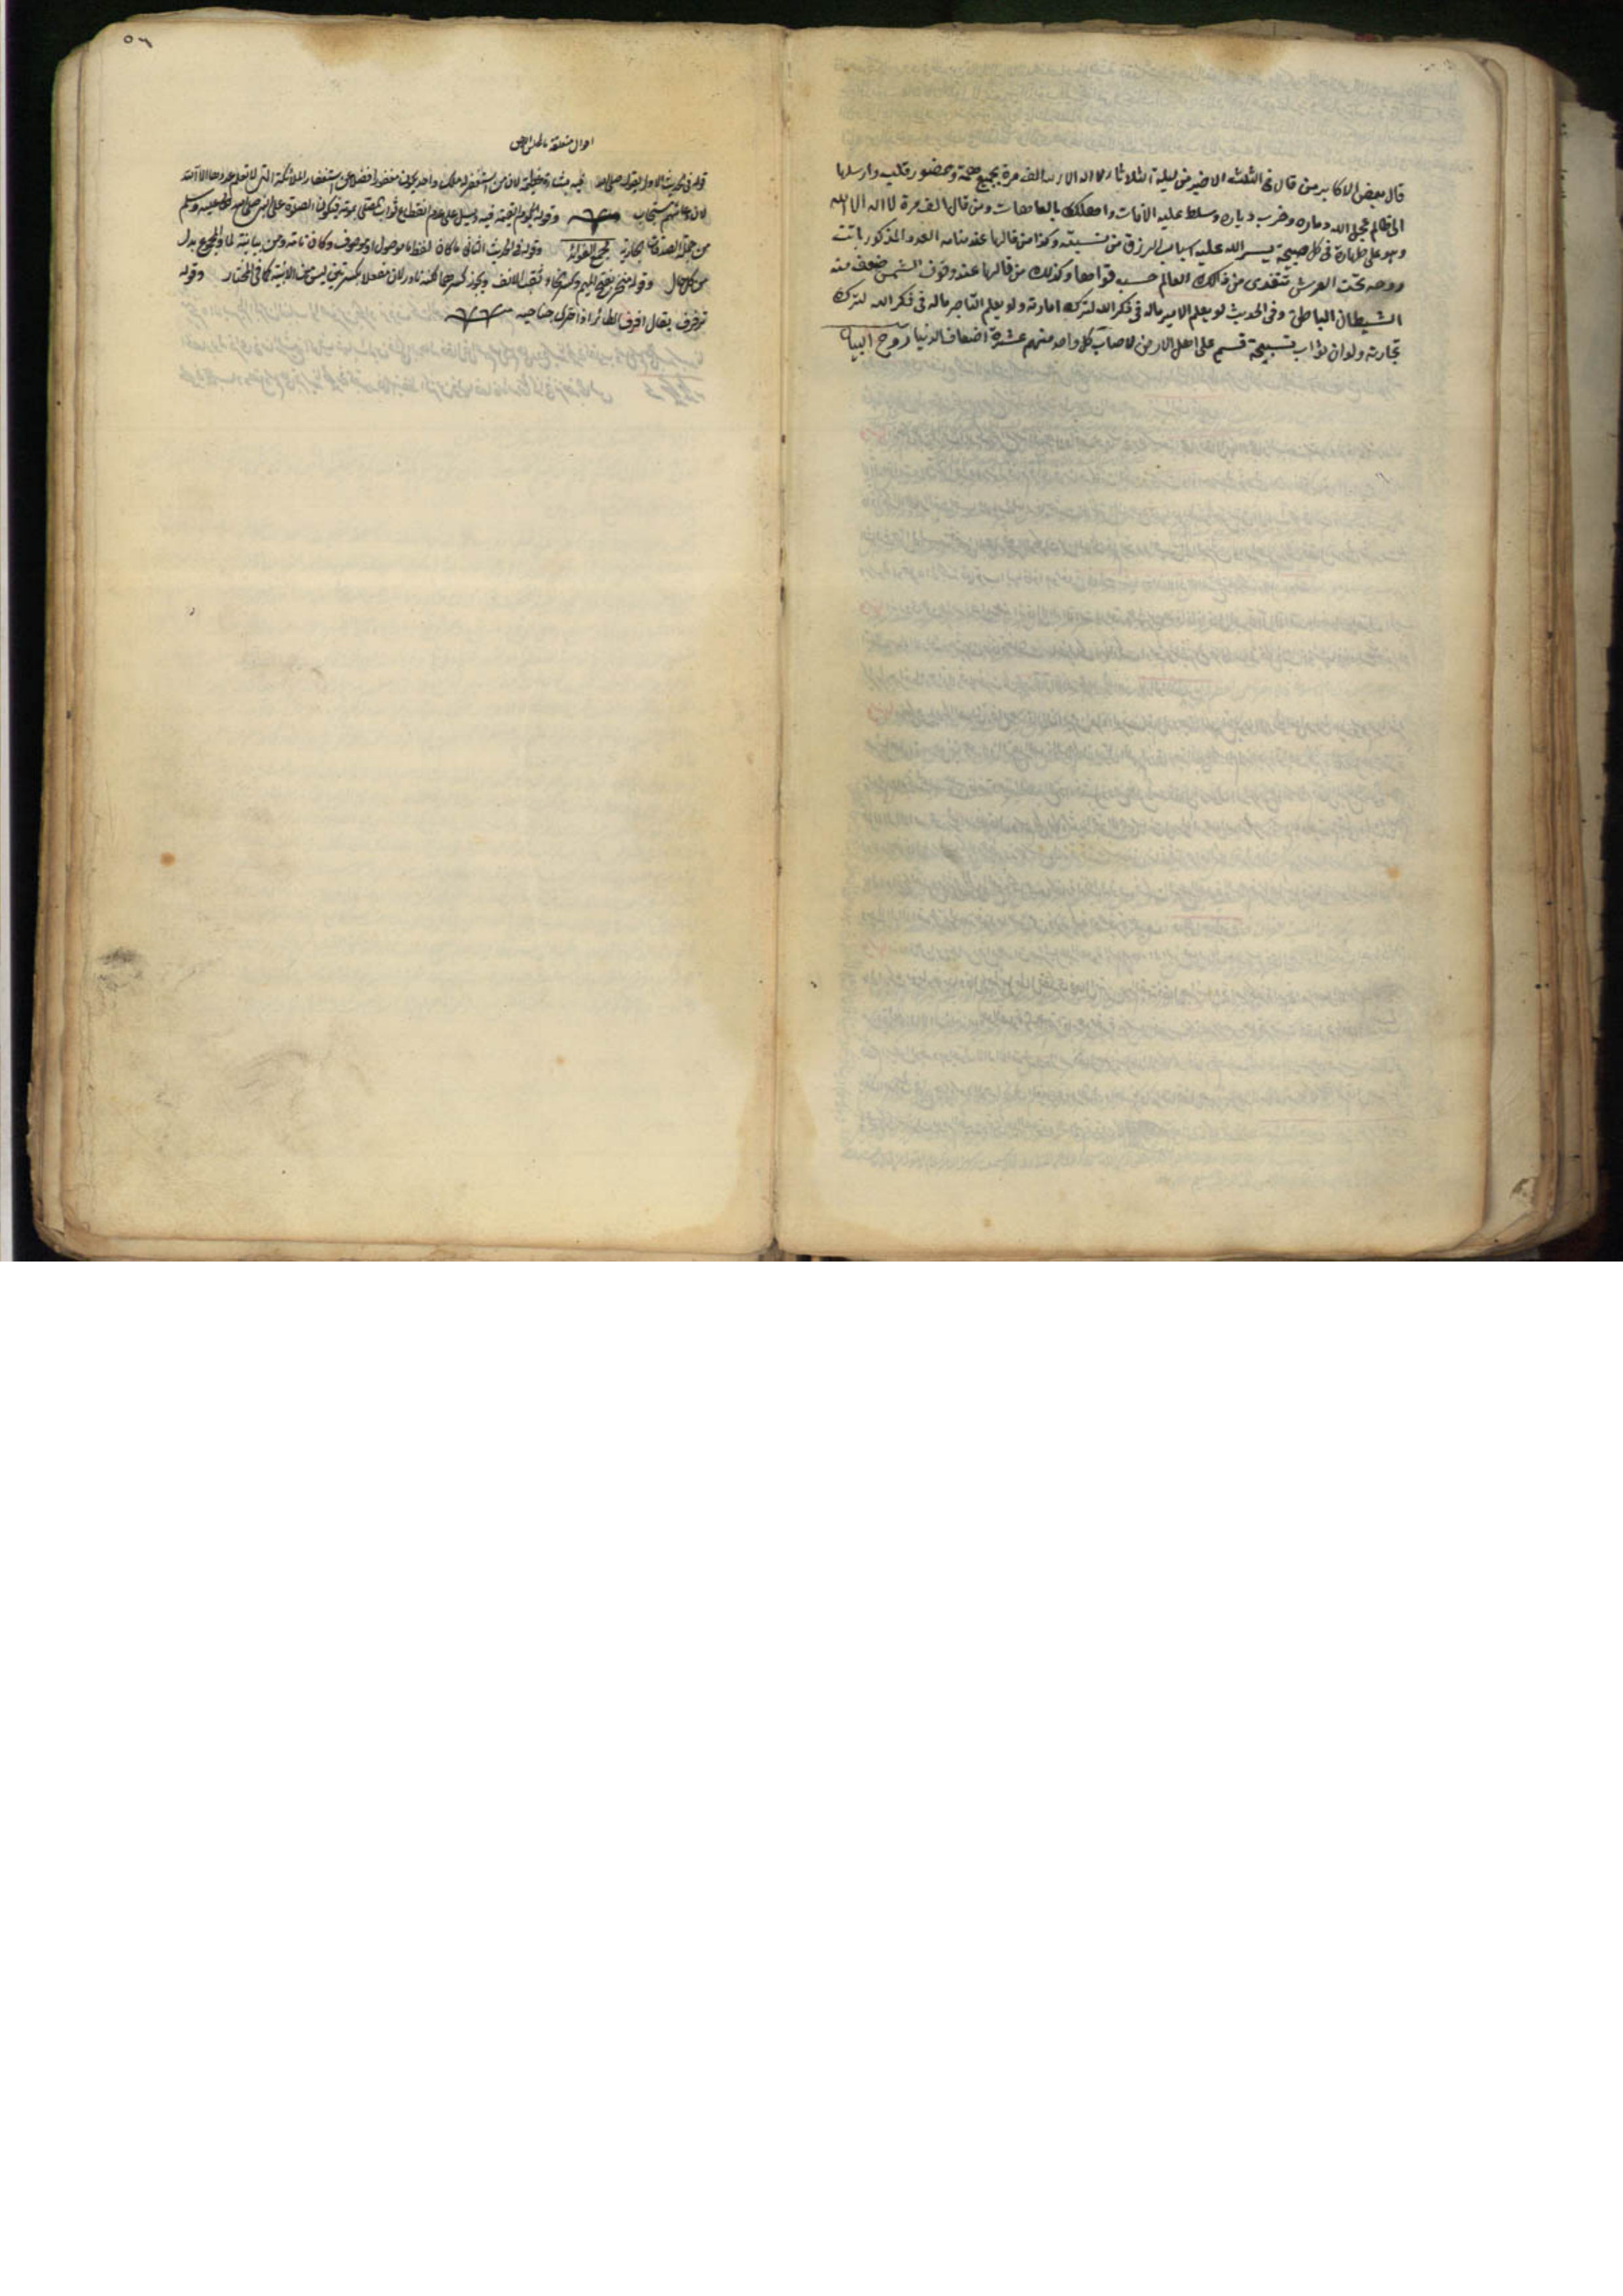 قال بعض الاكابر من قال في الثلث الاخير من ليلة الثلاثا لا اله الا الله الف مرة بجميع همة وحضور قلب وارسلها
الى ظالم عجل الله دماره وخرب دياره وسلط عليه الآفات واهلكك بالعاهات ومن قال الف مرة لا اله الا الله
وهو على طهارة في كل صبيحة يسر الله عليه اسباب الرزق من نسبته وكذا من قالها عند منامه العدد المذكور باتت
روحه تحت العرش تتغدى من ذلك العالم حسب قواها وكذلك من قالها عند وقوف الشمس ضعف منه
الشيطان الباطن وفي الحديث لو يعلم الامير ماله في ذكر الله لترك امارته ولو يعلم التاجر ماله في ذكر الله لترك
تجارته ولو ان ثواب تسبيحة قسم على اهل الارض لاصاب كل واحد منهم عشرة اضعاف الدنيا روح البيان
٥٦
احوال متعلقة
قوله في حديث الاول بقوله صلى الله فيه بشارة عظيمة لان من استغفر له ملك واحد يكون مغفورا فضلا عن استغفار الملائكة التي لا تعلم عددها الا الله
لان دعائهم مستجاب وقوله الى يوم القيمة فيه دليل على عدم انقطاع ثواب المصلي بموته فيكون الصلاة على النبي صلى الله تعالى عليه وسلم
من جملة الصدقات الجارية مجمع الفوائد وقوله في الحديث الثاني ما كان لفظ ما موصول او موصوف وكان تامة ومن بيانية لما والمجموع بدل
من كل حال وقوله منخر بفتح الميم وكسر الخاء ثقب الانف ويجوز كسرهما لكنه نادر لان مفعلا بكسرتين ليس من الابنية كما في المختار وقوله
ترفرف يقال رفرف الطائر اذا حرك جناحيه